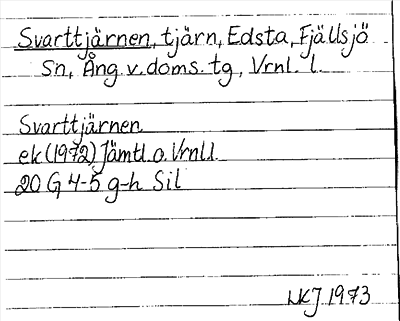 Svarttjärnen, tjärn, Edsta, Fjällsjö
Sn, Ång. v. doms. tg, Vrnl. l.
Svarttjärnen
ek (1972) Jämtl. o. Vrnl.l.
20 G 4-5 g-h Sil
LKJ 1973